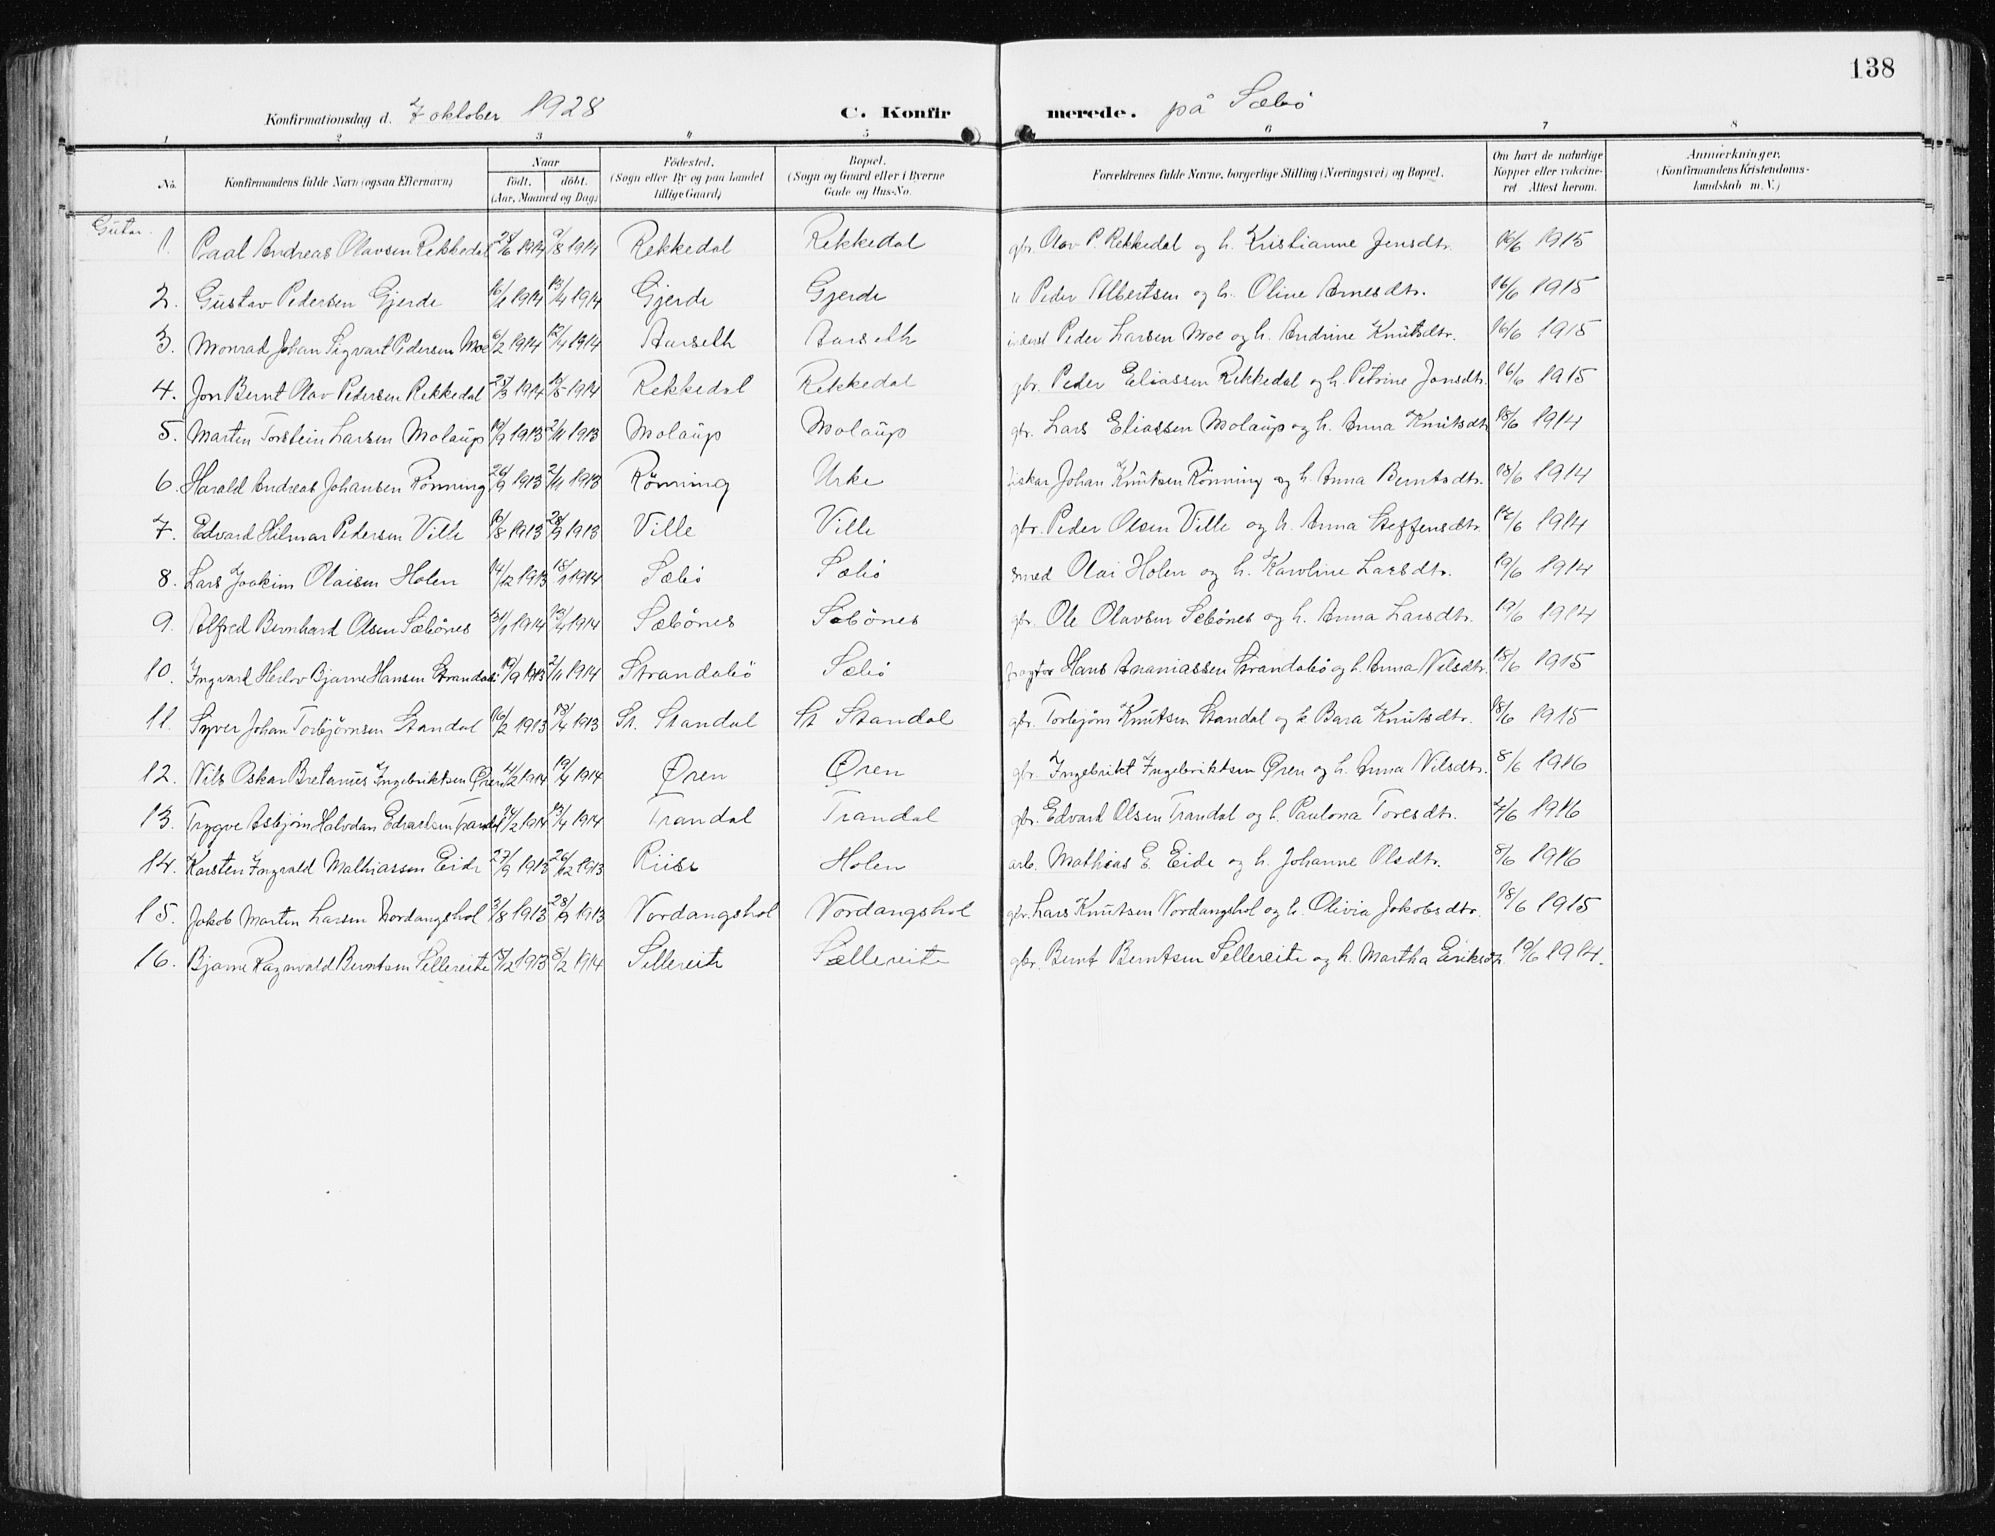 138
Konfirmationsdag d. 7 oktober 1928 C. Konfirmerede. på Sæbö
1 2 3 4 5 6 7 8
No. Konfirmandens fulde Navn (ogsaa Efternavn) Naar födt. döbt. (Aar, Maaned og Dag) Födested. (Sogn eller By og paa Landet tillige Gaard) Bopæl. (Sogn og Gaard eller i Byerne Gade og Hus-No. Forældrenes fulde Navne, borgerlige Stilling (Næringsvei) og Bopæl. Om havt de naturlige Kopper eller vakcineret Attest herom. Anmærkninger. (Konfirmandens Kristendomskundskab m. V.)
Gutar.
1. Paal Andreas Olavsen Rekkedal 1914 9/8 1914 Rekkedal Rekkedal gbr. Olav P. Rekkedal og h. Kristianne Jensdtr. 16/6 1915
2. Gustav Pedersen Gjerde 16/1 1914 13/4 1914 Gjerde Gjerde " Peder Albertsen og h. Oline Arnesdtr. 16/6 1915
3. Monrad Johan Sigvart Pedersen Moe 6/2 1914 12/4 1914 Aarseth Aarseth inderst Peder Larsen Moe og h. Andrine Knutsdtr. 16/6 1915
4. Jon Bernt Olav Pedersen Rekkedal 23/3 1914 1914 Rekkedal Rekkedal gbr. Peder Eliassen Rekkedal og h. Petrine Jonsdtr. 16/6 1915
5. Marten Torstein Larsen Molaup 19/9 1913 2/11 1913 Molaup Molaup gbr. Lars Eliassen Molaup og h. Anna Knutsdtr 18/6 1914
6. Harald Andreas Johansen Rönning 26/9 1913 2/11 1913 Rönning Urke fiskar Johan Knutsen Rönning og h. Anna Berntsdtr. 18/6 1914
7. Edvard Hilmar Pedersen Ville 16/8 1913 28/9 1913 Ville Ville gbr. Peder Olsen Ville og h. Anna Steffensdtr. 1914
8. Lars Joakim Olaisen Holen 14/12 1913 18/1 1914 Sæbö Sæbö smed Olai Holen og h. Karoline Larsdtr. 19/6 1914
9. Alfred Bernhard Olsen Sæbönes 31/1 1914 13/4 1914 Sæbönes Sæbönes gbr. Ole Olavsen Sæbönes og h. Anna Larsdtr. 19/6 1914
10. Ingvard Herlov Bjarne Hansen Strandabö 19/9 1913 2/11 1914 Strandabö Sæbö Hans Ananiassen Strandabö og h. Anna Nilsdtr. 18/6 1915
11. Syver Johan Torbjörnsen Standal 16/2 1913 13/4 1913 St. Standal St Standal gbr. Torbjörn Knutsen Standal og h Bara Knutsdtr. 18/6 1915
12. Nils Oskar Bretanus Ingebriktsen Øren 1914 19/4 1914 Øren Øren gbr. Ingebrikt Ingebriktsen Øren og h. Anna Nilsdtr. 8/6 1916
13. Trygve Asbjörn Halvdan Edvardsen Trandal 1914 13/4 1914 Trandal Trandal gbr. Edvard Olsen Trandal og h. Paulona Toresdtr. 7/6 1916
14. Karsten Ingvald Mathiassen Eide 27/9 1913 26/12 1913 Riise Holen arb. Mathias E. Eide og h. Johanne Olsdtr. 8/6 1916
15. Jakob Martin Larsen Nordangshol 3/8 1913 28/9 1913 Nordangshol Nordangshol gbr. Lars Knutsen Nordangshol og h. Olivia Jakobsdtr. 18/6 1915
16. Bjarne Ragnvald Berntsen Sellereite 1913 8/2 1914 Sellereite Sællereite gbr. Bernt Berntsen Sellereite og h. Martha Eriksdtr. 19/6 1914.